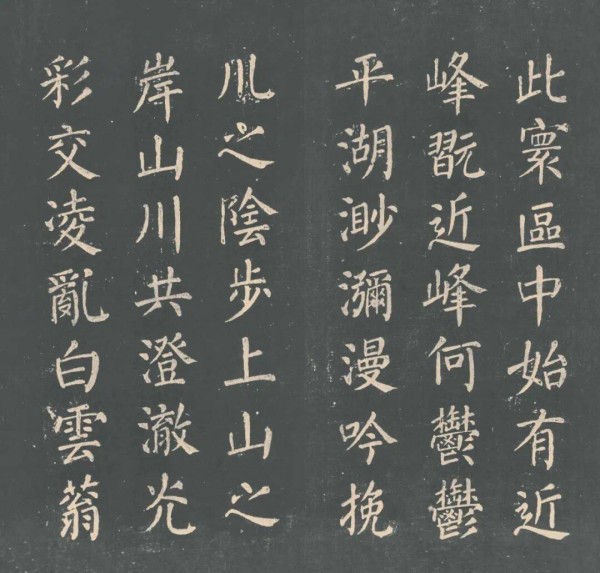 此寰區中始有近
峰翫近峰何鬱鬱
平湖渺瀰漫吟挽
川之陰步上山之
岸山川共澄澈光
彩交凌亂白雲蓊